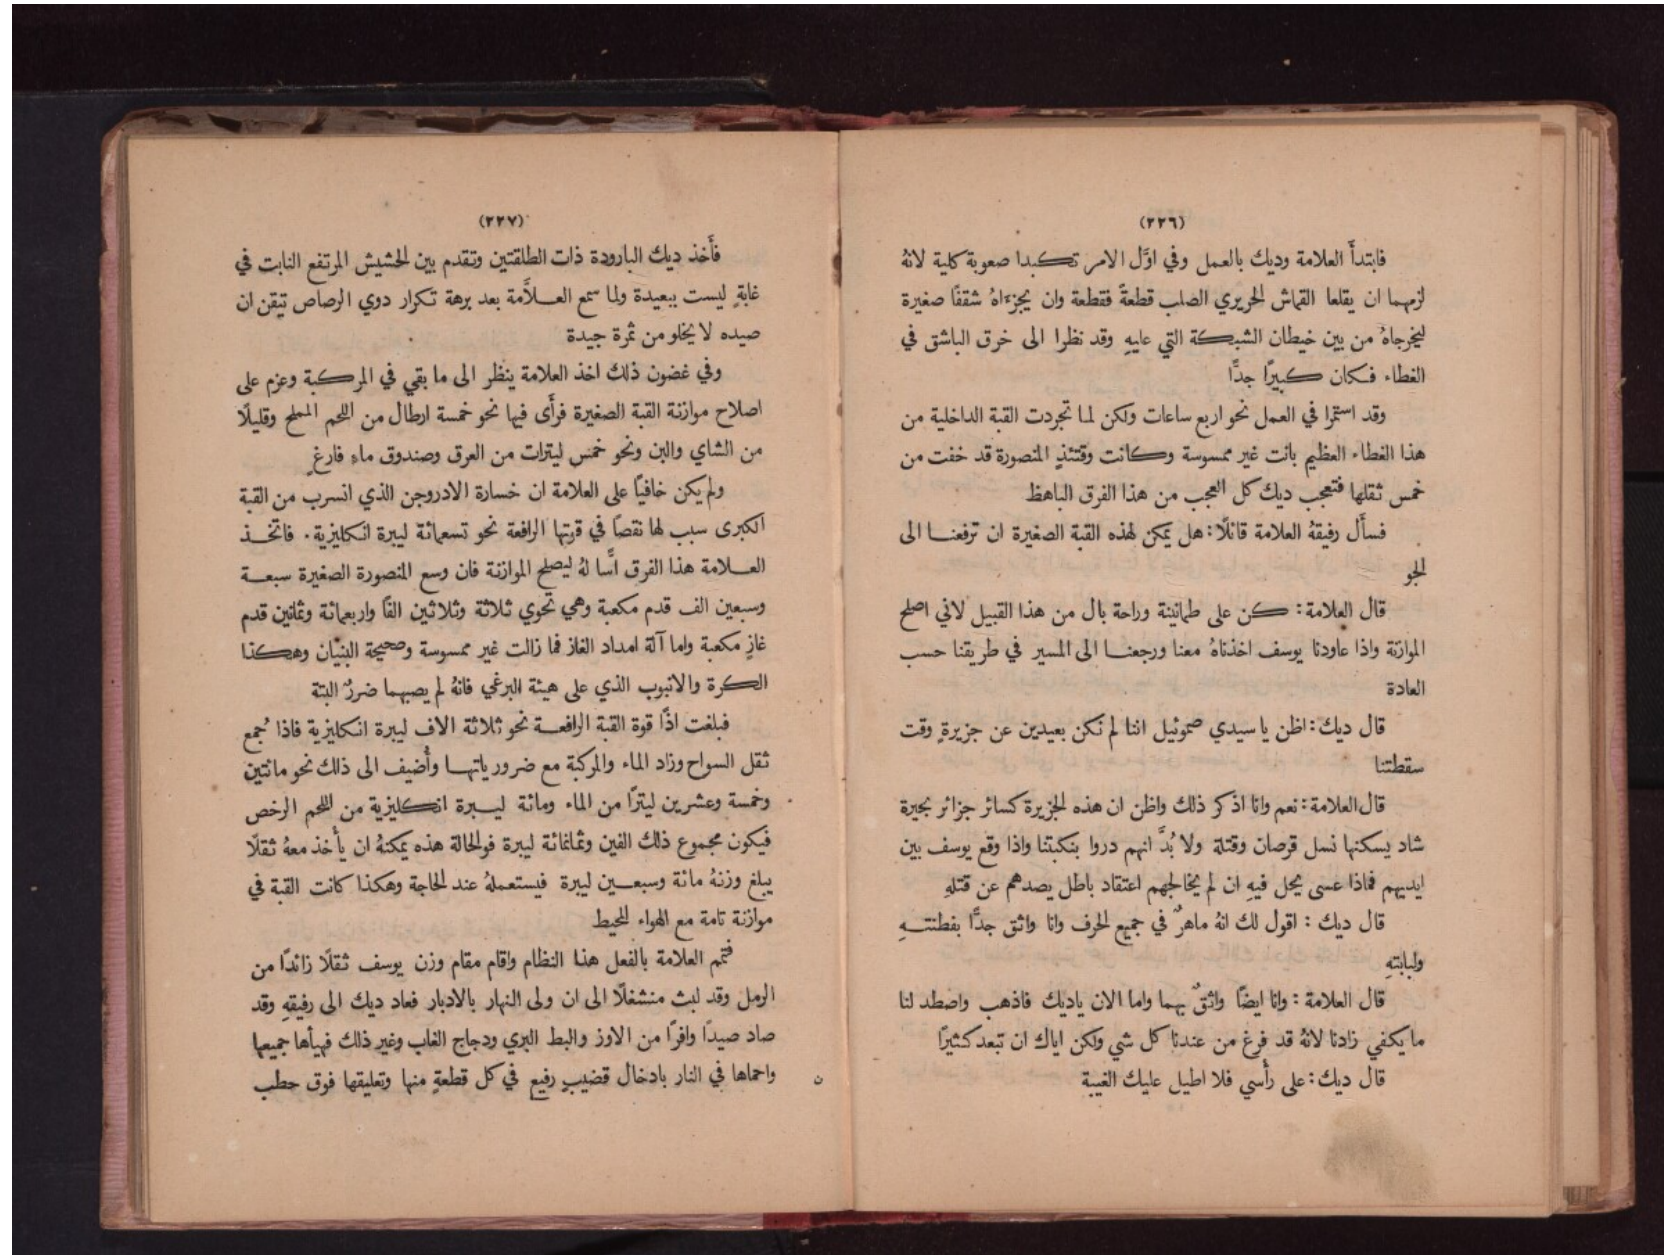 (٢٢٦)
فابتدأَ العلامة وديك بالعمل وفي اوَّل الامر تكبدا صعوبة كلية لانهُ
لزمهما ان يقلعا القماش الحريري الصلب قطعةً فقطعة وان يجزءَاهُ شققًا صغيرة
ليخرجاهُ من بين خيطان الشبكة التي عليهِ وقد نظرا الى خرق الباشق في
الغطاء فكان كبيرًا جدًّا
وقد استمرا في العمل نحو اربع ساعات ولكن لما تجردت القبة الداخلية من
هذا الغطاء العظيم بانت غير ممسوسة وكانت وقتئذٍ المنصورة قد خفت من
خمس ثقلها فتعجب ديك كل العجب من هذا الفرق الباهظ
فسأَل رفيقهُ العلامة قائلًا: هل يمكن لهذه القبة الصغيرة ان ترفعنا الى
الجو
قال العلامة: كن على طمانينة وراحة بال من هذا القبيل لاني اصلح
الموازنة واذا عاودنا يوسف اخذناهُ معنا ورجعنا الى المسير في طريقنا حسب
العادة
قال ديك: اظن يا سيدي صموئيل اننا لم نكن بعيدين عن جزيرةٍ وقت
سقطتنا
قال العلامة: نعم وانا اذكر ذلك واظن ان هذه الجزيرة كسائر جزائر بحيرة
شاد يسكنها نسل قرصان وقتلة ولا بُدَّ انهم دروا بنكبتنا واذا وقع يوسف بين
ايديهم فماذا عسى يحل فيهِ ان لم يخالجهم اعتقاد باطل يصدهم عن قتلهِ
قال ديك : اقول لك انهُ ماهرٌ في جميع الحرف وانا واثق جدًّا بفطنتهِ
ولبابتهِ
قال العلامة : وانا ايضًا واثقٌ بهما واما الان ياديك فاذهب واصطد لنا
ما يكفي زادنا لانهُ قد فرغ من عندنا كل شي ولكن اياك ان تبعد كثيرًا
قال ديك: على رأسي فلا اطيل عليك الغيبة
(٢٢٧)
فأَخذ ديك البارودة ذات الطلقتين وتقدم بين الحشيش المرتفع النابت في
غابةٍ ليست ببعيدة ولما سمع العلاَّمة بعد برهة تكرار دوي الرصاص تيقن ان
صيده لا يخلو من ثمرة جيدة
وفي غضون ذلك اخذ العلامة ينظر الى ما بقي في المركبة وعزم على
اصلاح موازنة القبة الصغيرة فرأَى فيها نحو خمسة ارطال من اللحم المملح وقليلًا
من الشاي والبن ونحو خمس ليترات من العرق وصندوق ماءٍ فارغٍ
ولم يكن خافيًا على العلامة ان خسارة الادروجن الذي انسرب من القبة
الكبرى سبب لها نقصًا في قوتها الرافعة نحو تسعمائة ليبرة انكليزية. فاتخذ
العلامة هذا الفرق اسًّا لهُ ليصلح الموازنة فان وسع المنصورة الصغيرة سبعة
وسبعين الف قدم مكعبة وهي تحوي ثلاثة وثلاثين الفًا واربعمائة وثمانين قدم
غازٍ مكعبة واما آلة امداد الغاز فما زالت غير ممسوسة وصحيحة البنيان وهكذا
الكرة والانبوب الذي على هيئة البرغي فانهُ لم يصبهما ضررٌ البتة
فبلغت اذًا قوة القبة الرافعة نحو ثلاثة الاف ليبرة انكليزية فاذا جُمع
ثقل السواح وزاد الماء والمركبة مع ضرورياتها وأُضيف الى ذلك نحو مائتين
وخمسة وعشرين ليترًا من الماء ومائة ليبرة انكليزية من اللحم الرخص
فيكون مجموع ذلك الفين وثمانمائة ليبرة فوالحالة هذه يمكنهُ ان يأخذ معهُ ثقلًا
يبلغ وزنهُ مائة وسبعين ليبرة فيستعملهُ عند الحاجة وهكذا كانت القبة في
موازنة تامة مع الهواء المحيط
فتمم العلامة بالفعل هذا النظام واقام مقام وزن يوسف ثقلًا زائدًا من
الرمل وقد لبث منشغلًا الى ان ولى النهار بالادبار فعاد ديك الى رفيقهِ وقد
صاد صيدًا وافرًا من الاوز والبط البري ودجاج الغاب وغير ذلك فهيأها جميعها
واحماها في النار بادخال قضيبٍ رفيع في كل قطعةٍ منها وتعليقها فوق حطب
ن